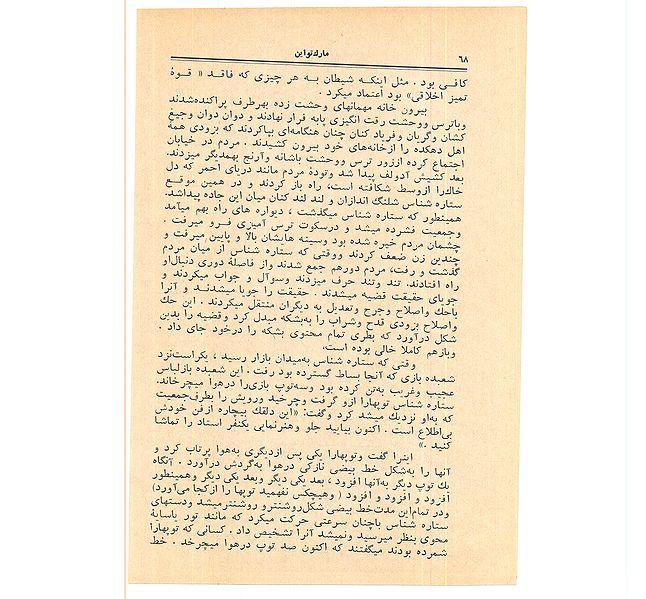 ۶۸
مارك‌تواين
كافى بود . مثل اينكه شيطان به هر چيزى كه فاقد « قوهٔ
تميز اخلاقى» بود اعتماد ميكرد .
بيرون خانه مهمانهاى وحشت زده بهرطرف پراكنده‌شدند
وباترس ووحشت رقت انگيزى پابه فرار نهادند و دوان دوان وجيغ
كشان وگريان وفرياد كنان چنان هنگامه‌اى بپاكردند كه بزودى همهٔ
اهل دهكده را ازخانه‌هاى خود بيرون كشيدند . مردم در خيابان
اجتماع كرده اززور ترس ووحشت باشانه وآرنج بهمديگر ميزدند.
بعد كشيش آدولف پيدا شد وتودهٔ مردم مانند درياى احمر كه دل
خاك‌را ازوسط شكافته است، راه باز كردند و در همين موقع
ستاره شناس شلنگ اندازان و لند لند كنان ميان اين جاده پيداشد.
همينطور كه ستاره شناس ميگذشت ، ديواره هاى راه بهم ميآمد
وجمعيت فشرده ميشد و درسكوت ترس آميزى فرو ميرفت .
چشمان مردم خيره شده بود وسينه هايشان بالا و پايين ميرفت و
چندين زن ضعف كردند ووقتى كه ستاره شناس از ميان مردم
گذشت و رفت، مردم دورهم جمع شدند واز فاصلهٔ دورى دنبال‌او
راه افتادند. تند وتند حرف ميزدند وسوآل و جواب ميكردند و
جوياى حقيقت قضيه ميشدند . حقيقت را جويا ميشدنـد و آنرا
باحك واصلاح وجرح وتعديل به ديگران منتقل ميكردند . اين حك
واصلاح بزودى قدح وشراب را به‌بشكه مبدل كرد وقضيه را بدين
شكل درآورد كه بطرى تمام محتوى بشكه را درخود جاى داد .
وبازهم كاملا خالى بوده است.
وقتى كه ستاره شناس به‌ميدان بازار رسيد ، يكراست‌نزد
شعبده بازى كه آنجا بساط گسترده بود رفت . اين شعبده بازلباس
عجيب وغريب به‌تن كرده بود وسه‌توپ بازى‌را درهوا ميچرخاند.
ستاره شناس توپهارا ازو گرفت وچرخيد ورويش را بطرف‌جمعيت
كه به‌او نزديك ميشد كرد وگفت: «اين دلقك بيچاره ازفن خودش
بى‌اطلاع است . اكنون بياييد جلو وهنرنمايى يكنفر استاد را تماشا
كنيد .»
اينرا گفت وتوپهارا يكى پس ازديگرى به‌هوا پرتاب كرد و
آنها را به‌شكل خط بيضى نازكى درهوا به‌گردش درآورد . آنگاه
يك توپ ديگر به‌آنها افزود ، بعد يكى ديگر وبعد يكى ديگر وهمينطور
افزود و افزود و افزود ( وهيچكس نفهميد توپها را ازكجا مى‌آورد)
ودر تمام‌اين مدت‌خط بيضى شكل‌روشنترو روشنترميشد ودستهاى
ستاره شناس باچنان سرعتى حركت ميكرد كه مانند تور ياسايهٔ
محوى بنظر ميرسيد ونميشد آنرا تشخيص داد . كسانى كه توپهارا
شمرده بودند ميگفتند كه اكنون صد توپ درهوا ميچرخد . خط